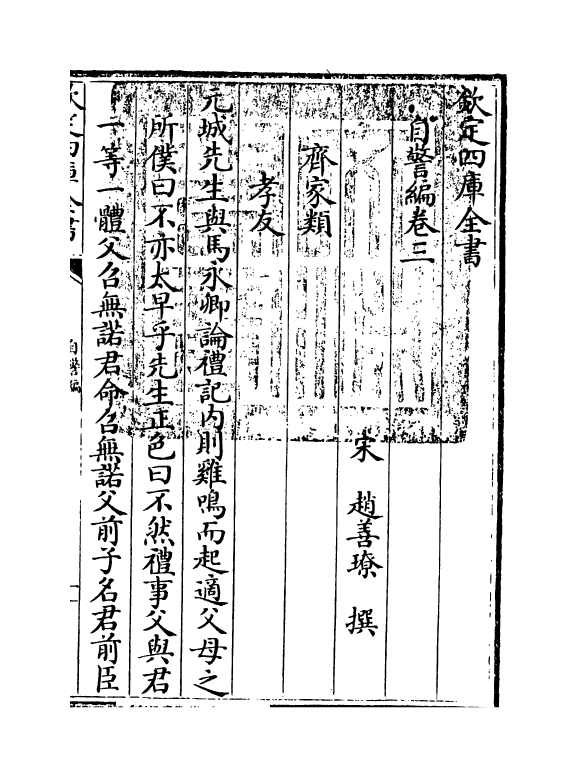 欽定四庫全書
自警編卷三
宋 趙善璙 撰
齊家類
孝友
元城先生與馬永卿論禮記內則雞鳴而起適父母之
所僕曰不亦太早乎先生正色曰不然禮事父與君
一等一體父召無諾君命召無諾父前子名君前臣
欽定四庫全書
自警編
一